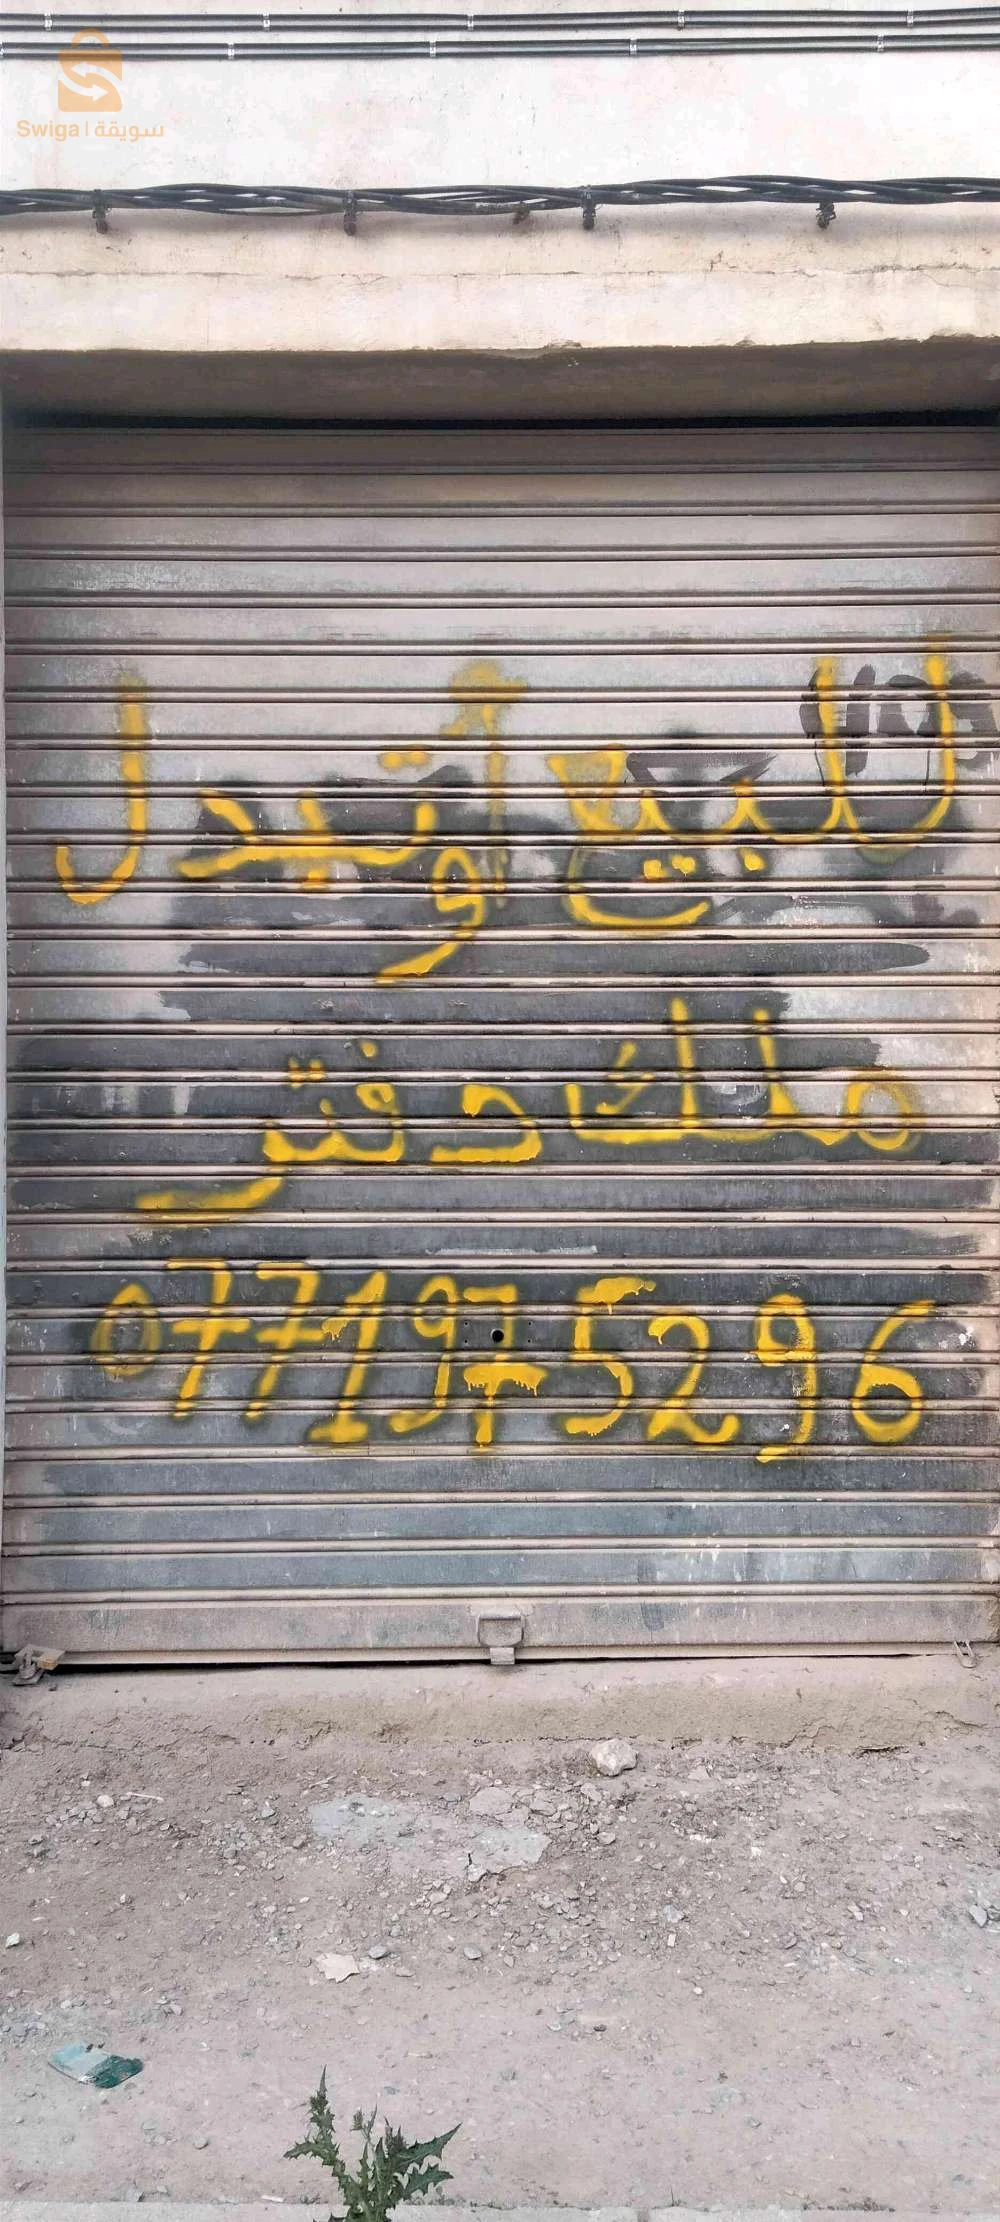 Swiga | سويقة
للبيع أو تبدل
ملك دفتر
0771975296